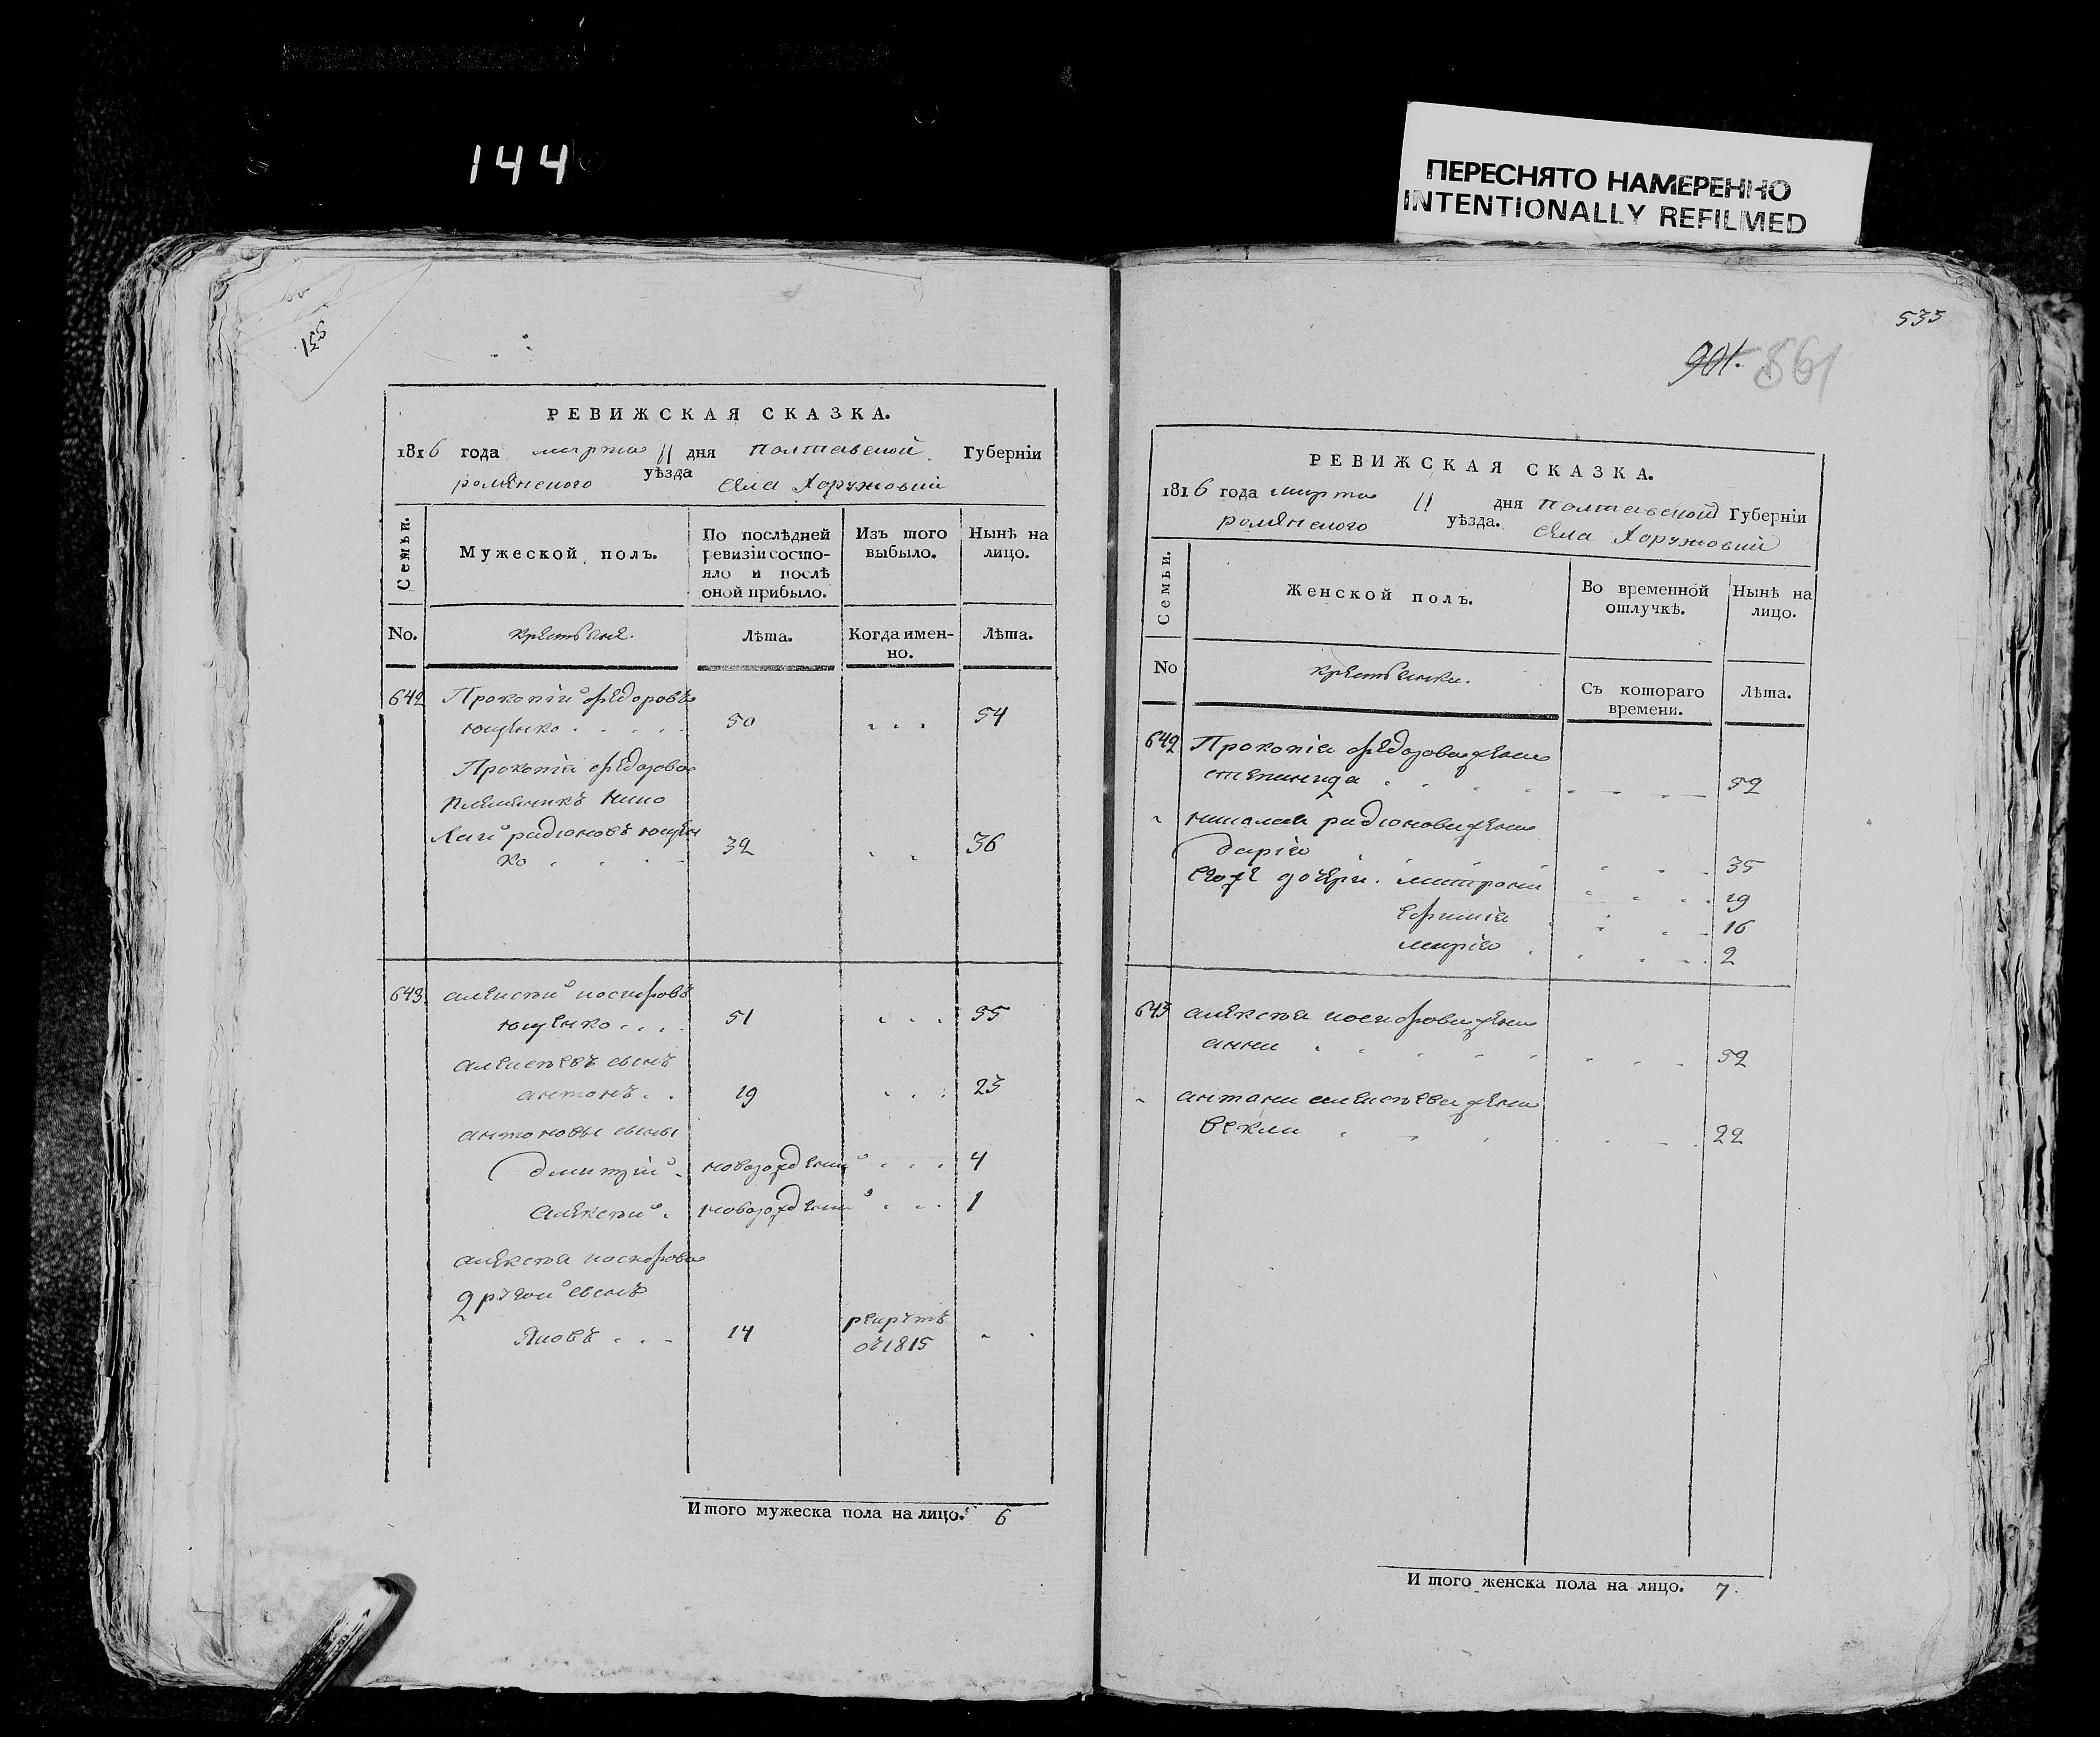 144
ПЕРЕСНЯТО НАМЕРЕННО
INTENTIONALLY REFILMED
531.
РЕВИЖСКАЯ СКАЗКА.
1816 года марта 11 дня Полтавской Губернїи
роменского уѣзда села Харужовки
Семьи.
Мужеской полъ.
По послѣдней ревизїи состояло и послѣ оной прибыло.
Изъ того выбыло.
Нынѣ на лицо.
No.
крестьяне.
Лѣта.
Когда именно.
Лѣта.
642 Прокопій федоровъ
ющенко . . . . . 50 . . . 54
Прокопія федорова
племяникъ Нико
лай радіоновъ ющен
ко . . . . 32 . . 36
643 алексѣй носифовъ
ющенко . . . . 51 . . . 55
алексѣевъ сынъ
антонъ . . 19 . . . 23
антоновы сыны
дмитрій . новорожденный . . . 4
алексѣй . новорожденный . . . 1
алексѣя иосифова
другой сынъ
Яковъ . . . 14 рекрутъ въ 1815 . .
Итого мужеска пола на лицо. 6
533
901. 561
РЕВИЖСКАЯ СКАЗКА.
1816 года марта 11 дня Полтавской Губернїи
роменского уѣзда. села Харужовки
Семьи.
Женской полъ.
Во временной отлучкѣ.
Нынѣ на лицо.
No
крестьянки.
Съ котораго времени.
Лѣта.
642 Прокопія федорова жена
степанида . . . . . . . . 52
николая радіонова жена
дарія . . . 35
Егоже дочери. матрона . . . . 19
ефимія . . . . 16
марія . . . . . 2
643 алексѣя иосифова жена
анна . . . . . . . . 52
антона алексѣева жена
векла . . . . . . 22
Итого женска пола на лицо. 7.